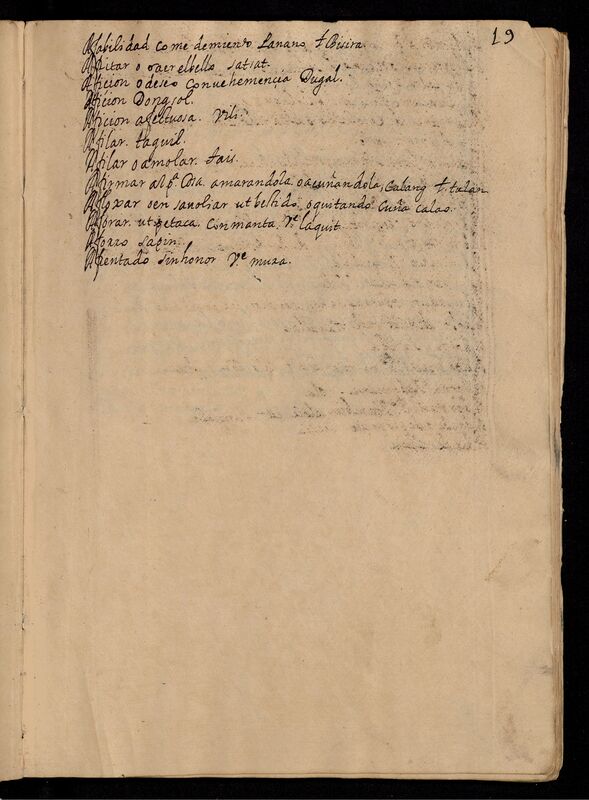 19
Afabilidad comedemiento Lanano t Bisira
Afeitar o raer elbello satsat.
Aficion o deseo Convehemencia Dugal.
Aficion Dongsol.
Aficion afectuosa. Vili.
Afilar. taquil.
Afilar o amolar. tais.
Afirmar alg.ª Cosa. amarandola o acuñandola, Galang t. talan
Afloxar o en sanchar ut bestido, o quitando Cuña Calao.
Aforrar. ut petaca Con manta. V.e laquit
Aforro Sapin.
Afrentado sinhonor V.e mura.